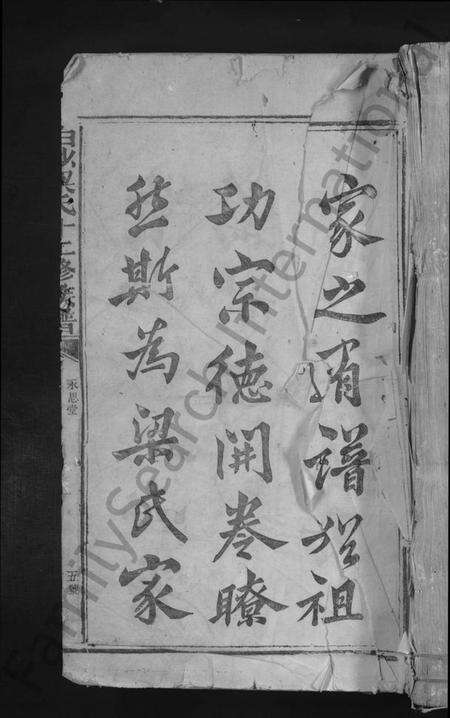 家之有譜然祖
功宗德開卷瞭
然斯為梁氏家
氏十二修族譜
永思堂
五號
FamilySearch International